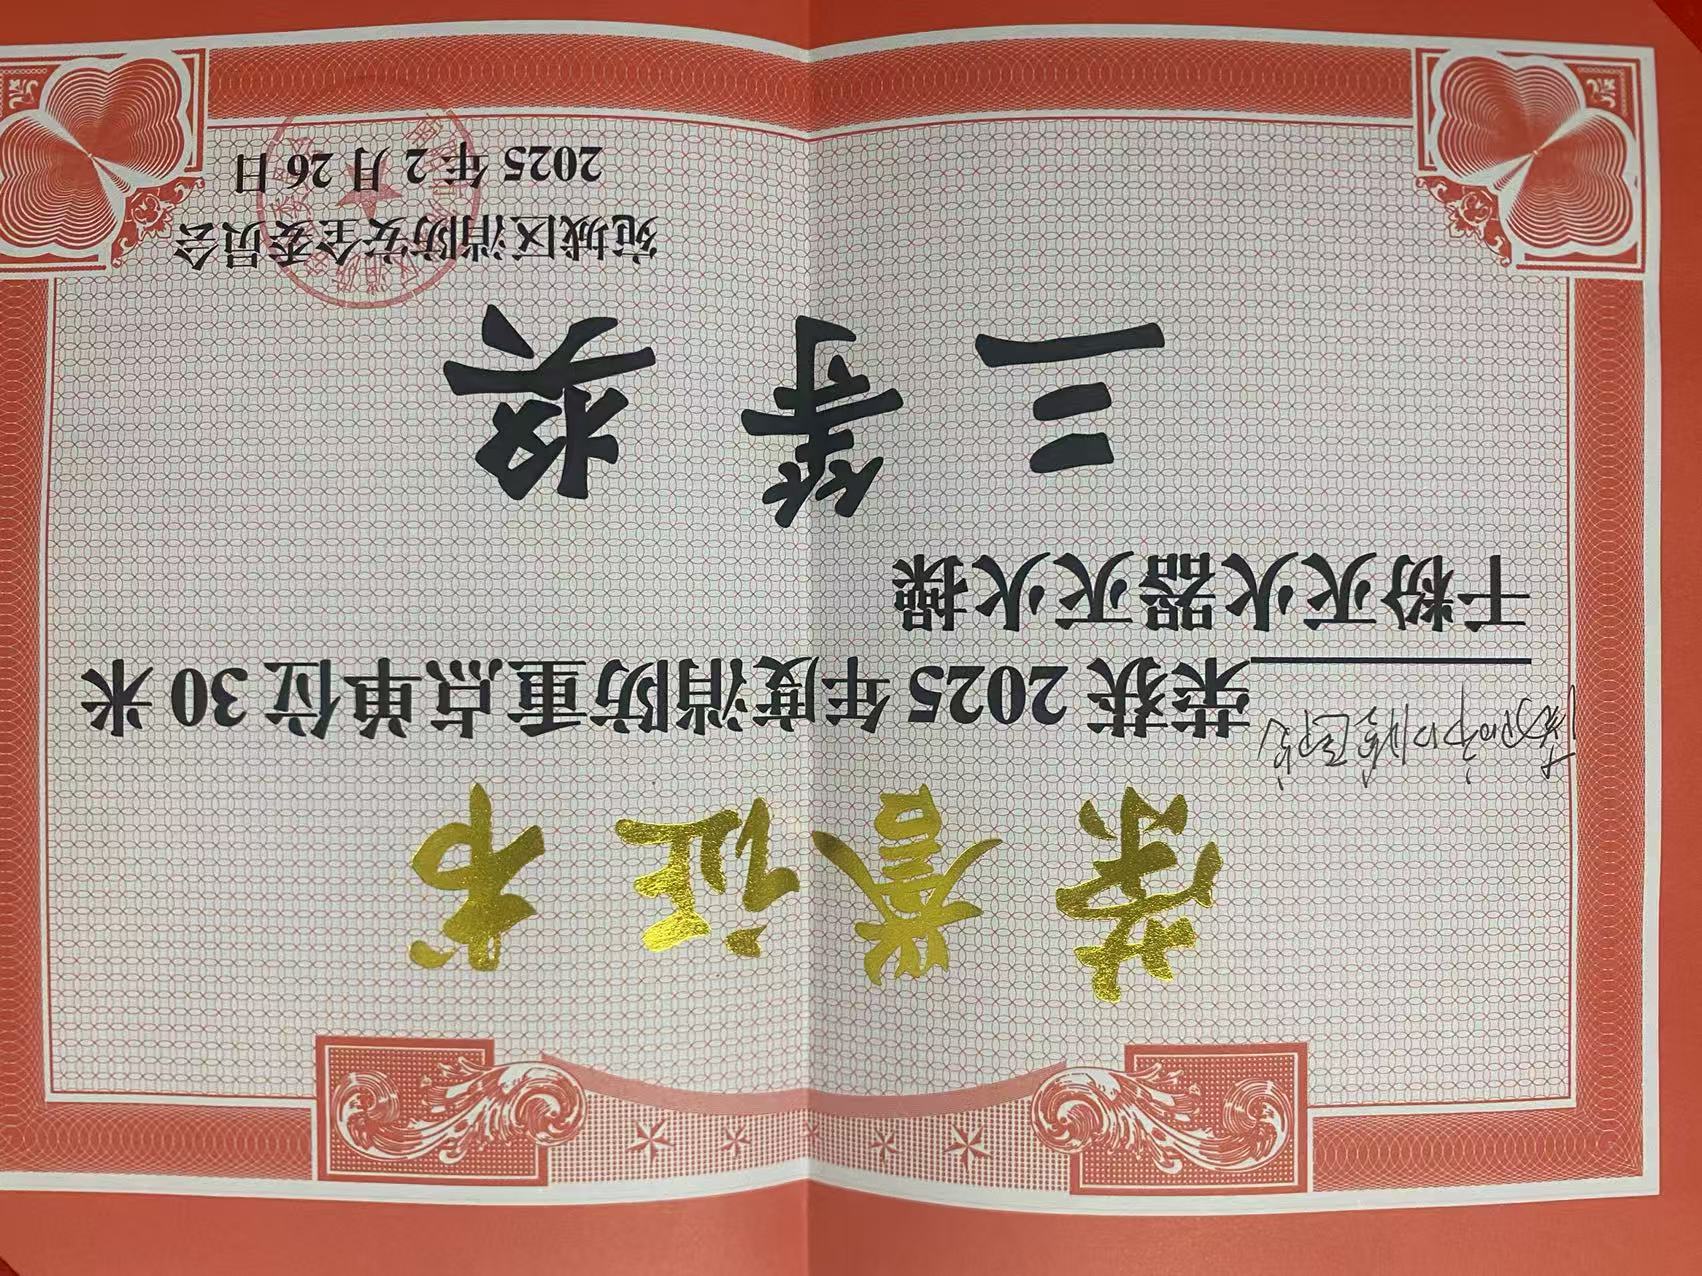 荣誉证书
荣获2025年度消防重点单位30米
干粉灭火器灭火操
三等奖
宛城区消防安全委员会
2025年2月26日